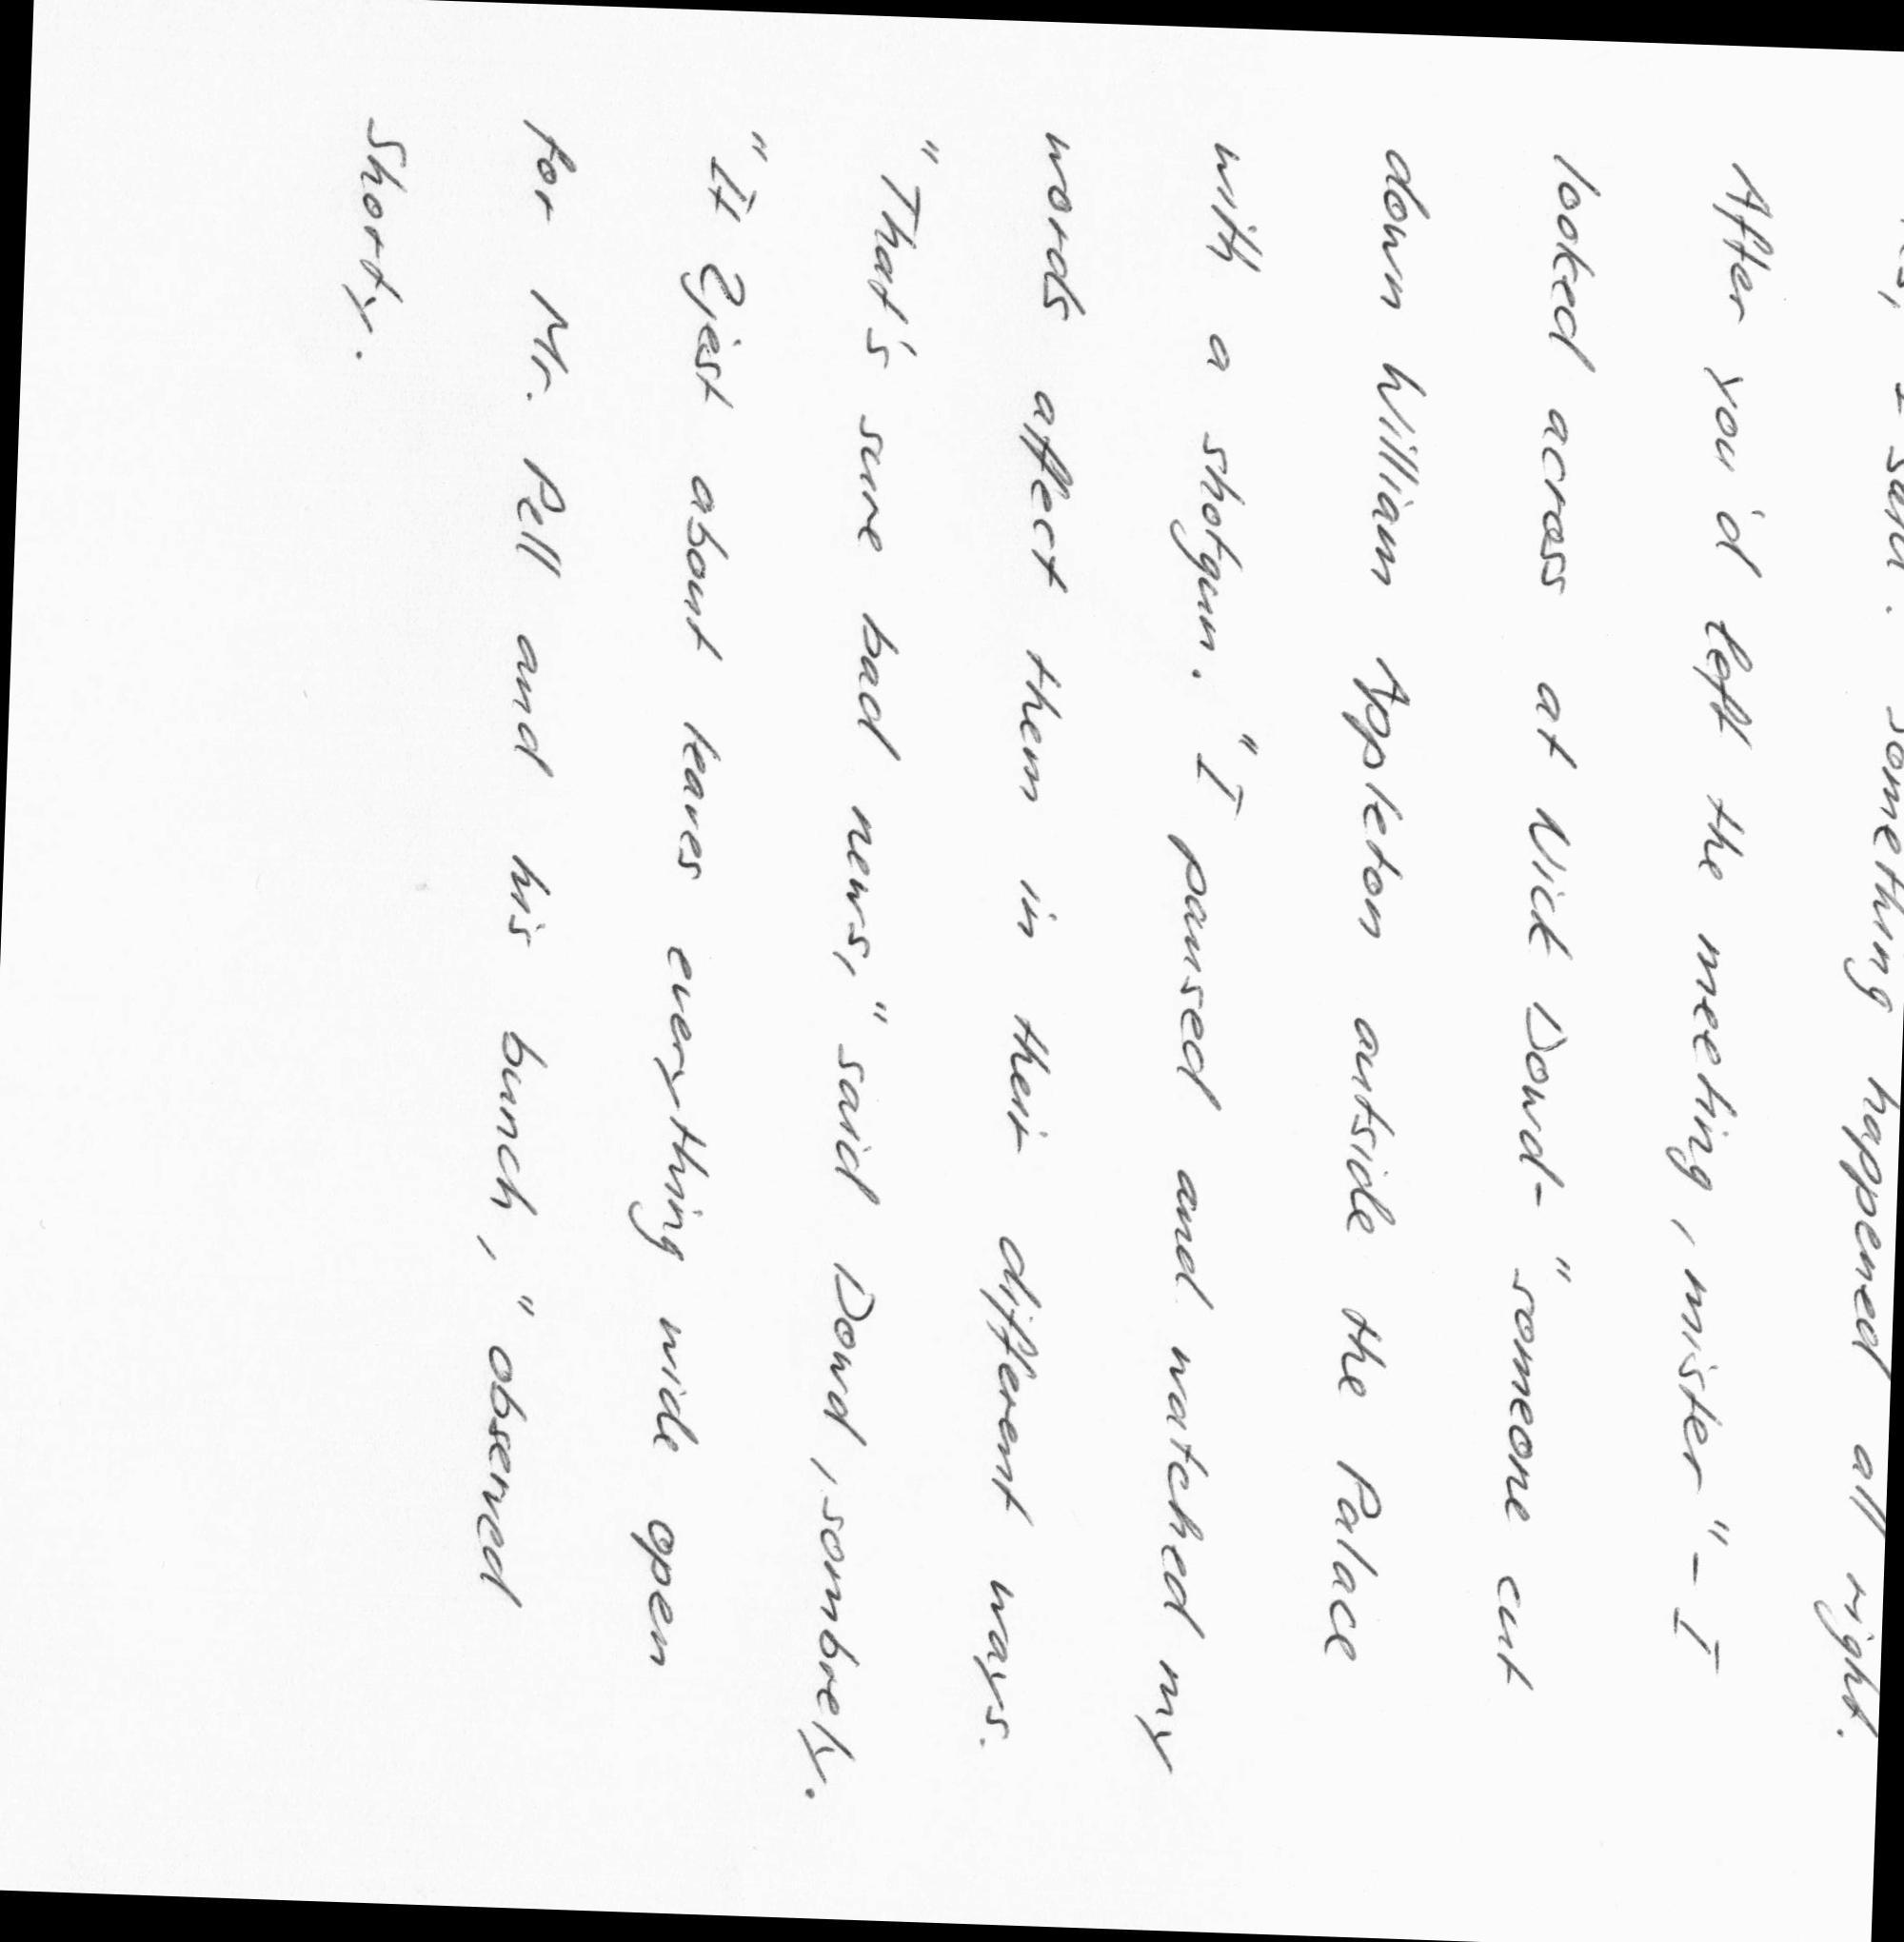 I said. something happened all right.
After you'd left the meeting, mister "- I
looked across at Nick Dowd- "someone cut
down William Appleton outside the Palace
with a shotgun. "I paused and watched my
words affect them in their different ways.
"That's sure bad news," said Dowd, sombrely.
"It jist about leaves everything wide open
for Mr. Pell and his bunch," observed
Shorty.